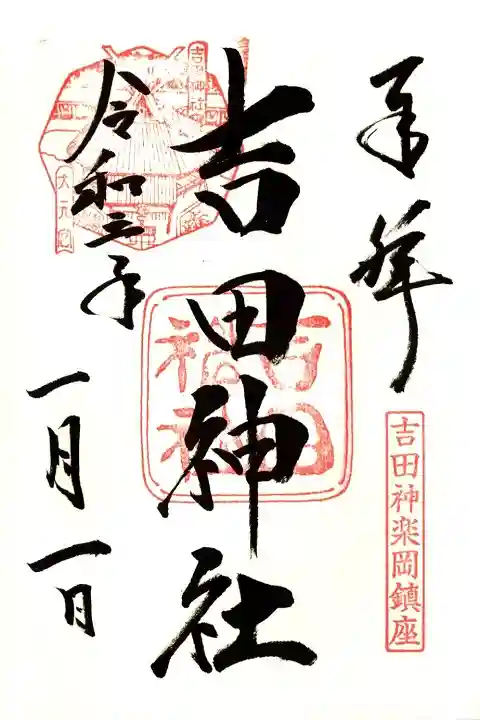 奉拝
吉田神楽岡鎮座
吉田神社
吉田神社
令和三年
一月一日
吉田神社
大元宮